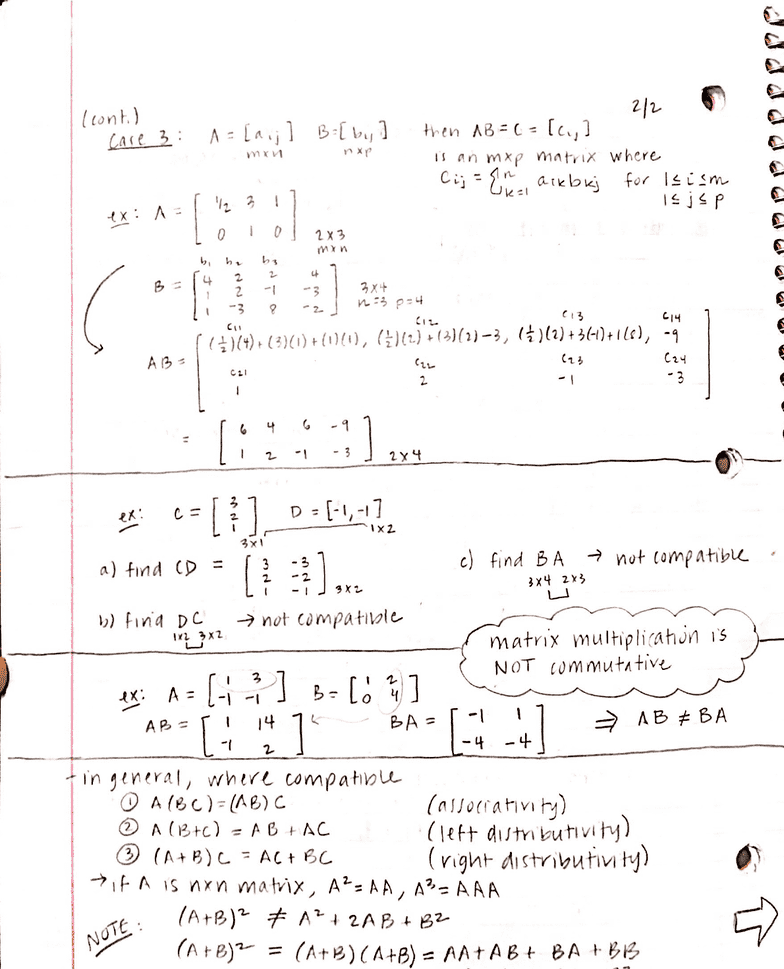 2/2
(cont.)
Case 3: A = [aij] B=[bij] then AB = C = [cij]
mxn nxp is an mxp matrix where
Cij = Σⁿk=1 aikbkj for 1≤i≤m
1≤j≤p
ex: A = [ 1/2 3 1
0 1 0 ] 2x3
mxn
b1 b2 b3
B = [ 4 2 2 4
1 2 -1 -3
1 -3 8 -2 ] 3x4
n=3 p=4
C11 C12 C13 C14
AB = [ (1/2)(4)+(3)(1)+(1)(1), (1/2)(2)+(3)(2)-3, (1/2)(2)+3(-1)+1(8), -9
C21 C22 C23 C24
1 2 -1 -3 ]
= [ 6 4 6 -9
1 2 -1 -3 ] 2x4
ex: C = [ 3
2
1 ] D = [-1,-1]
3x1 1x2
a) find CD = [ 3 -3
2 -2
1 -1 ] 3x2
b) find DC → not compatible
1x2 3x2
c) find BA → not compatible
3x4 2x3
matrix multiplication is
NOT commutative
ex: A = [ 1 3
-1 -1 ] B = [ 1 2
0 4 ]
AB = [ 1 14
-1 2 ] BA = [ -1 1
-4 -4 ] ⇒ AB ≠ BA
-in general, where compatible
① A(BC)=(AB)C (associativity)
② A(B+C) = AB + AC (left distributivity)
③ (A+B)C = AC + BC (right distributivity)
→if A is nxn matrix, A²=AA, A³=AAA
NOTE: (A+B)² ≠ A² + 2AB + B²
(A+B)² = (A+B)(A+B) = AA+AB+ BA + BB